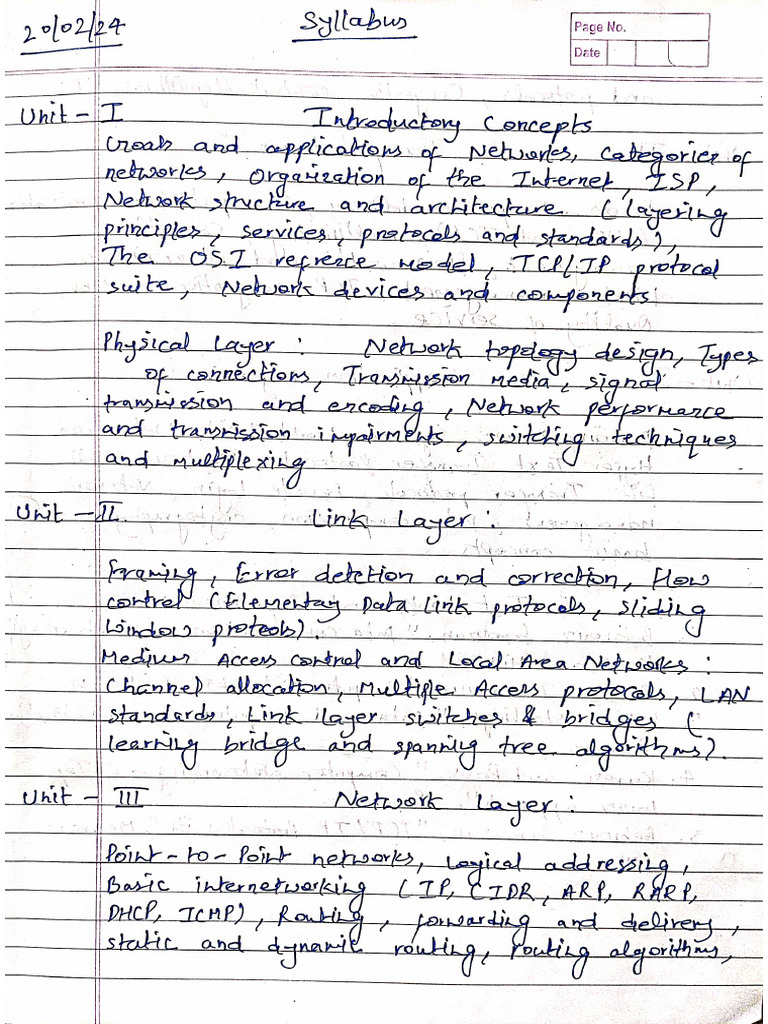 20/02/24
Syllabus
Page No.
Date
Unit - I Introductory Concepts
Goals and applications of Networks, Categories of
networks, Organization of the Internet, ISP,
Network structure and architecture (layering
principles, services, protocols and standards),
The OSI refrence model, TCP/IP protocol
suite, Network devices and components.
Physical Layer : Network topology design, Types
of connections, Transmission media, signal
transmission and encoding, Network performance
and transmission impairments, switching techniques
and multiplexing
Unit - II Link Layer :
Framing, Error detction and correction, Flow
control (Elementary Data Link protocols, sliding
window protcols).
Medium Access control and Local Area Networks :
Channel allocation, Multiple Access protocols, LAN
standards, Link layer switches & bridges (
learning bridge and spanning tree algorithms).
Unit - III Network Layer :
Point-to-Point networks, Logical addressing,
Basic internetworking (IP, CIDR, ARP, RARP,
DHCP, ICMP), Routing, forwarding and delivery,
static and dynamic routing, routing algorithms,